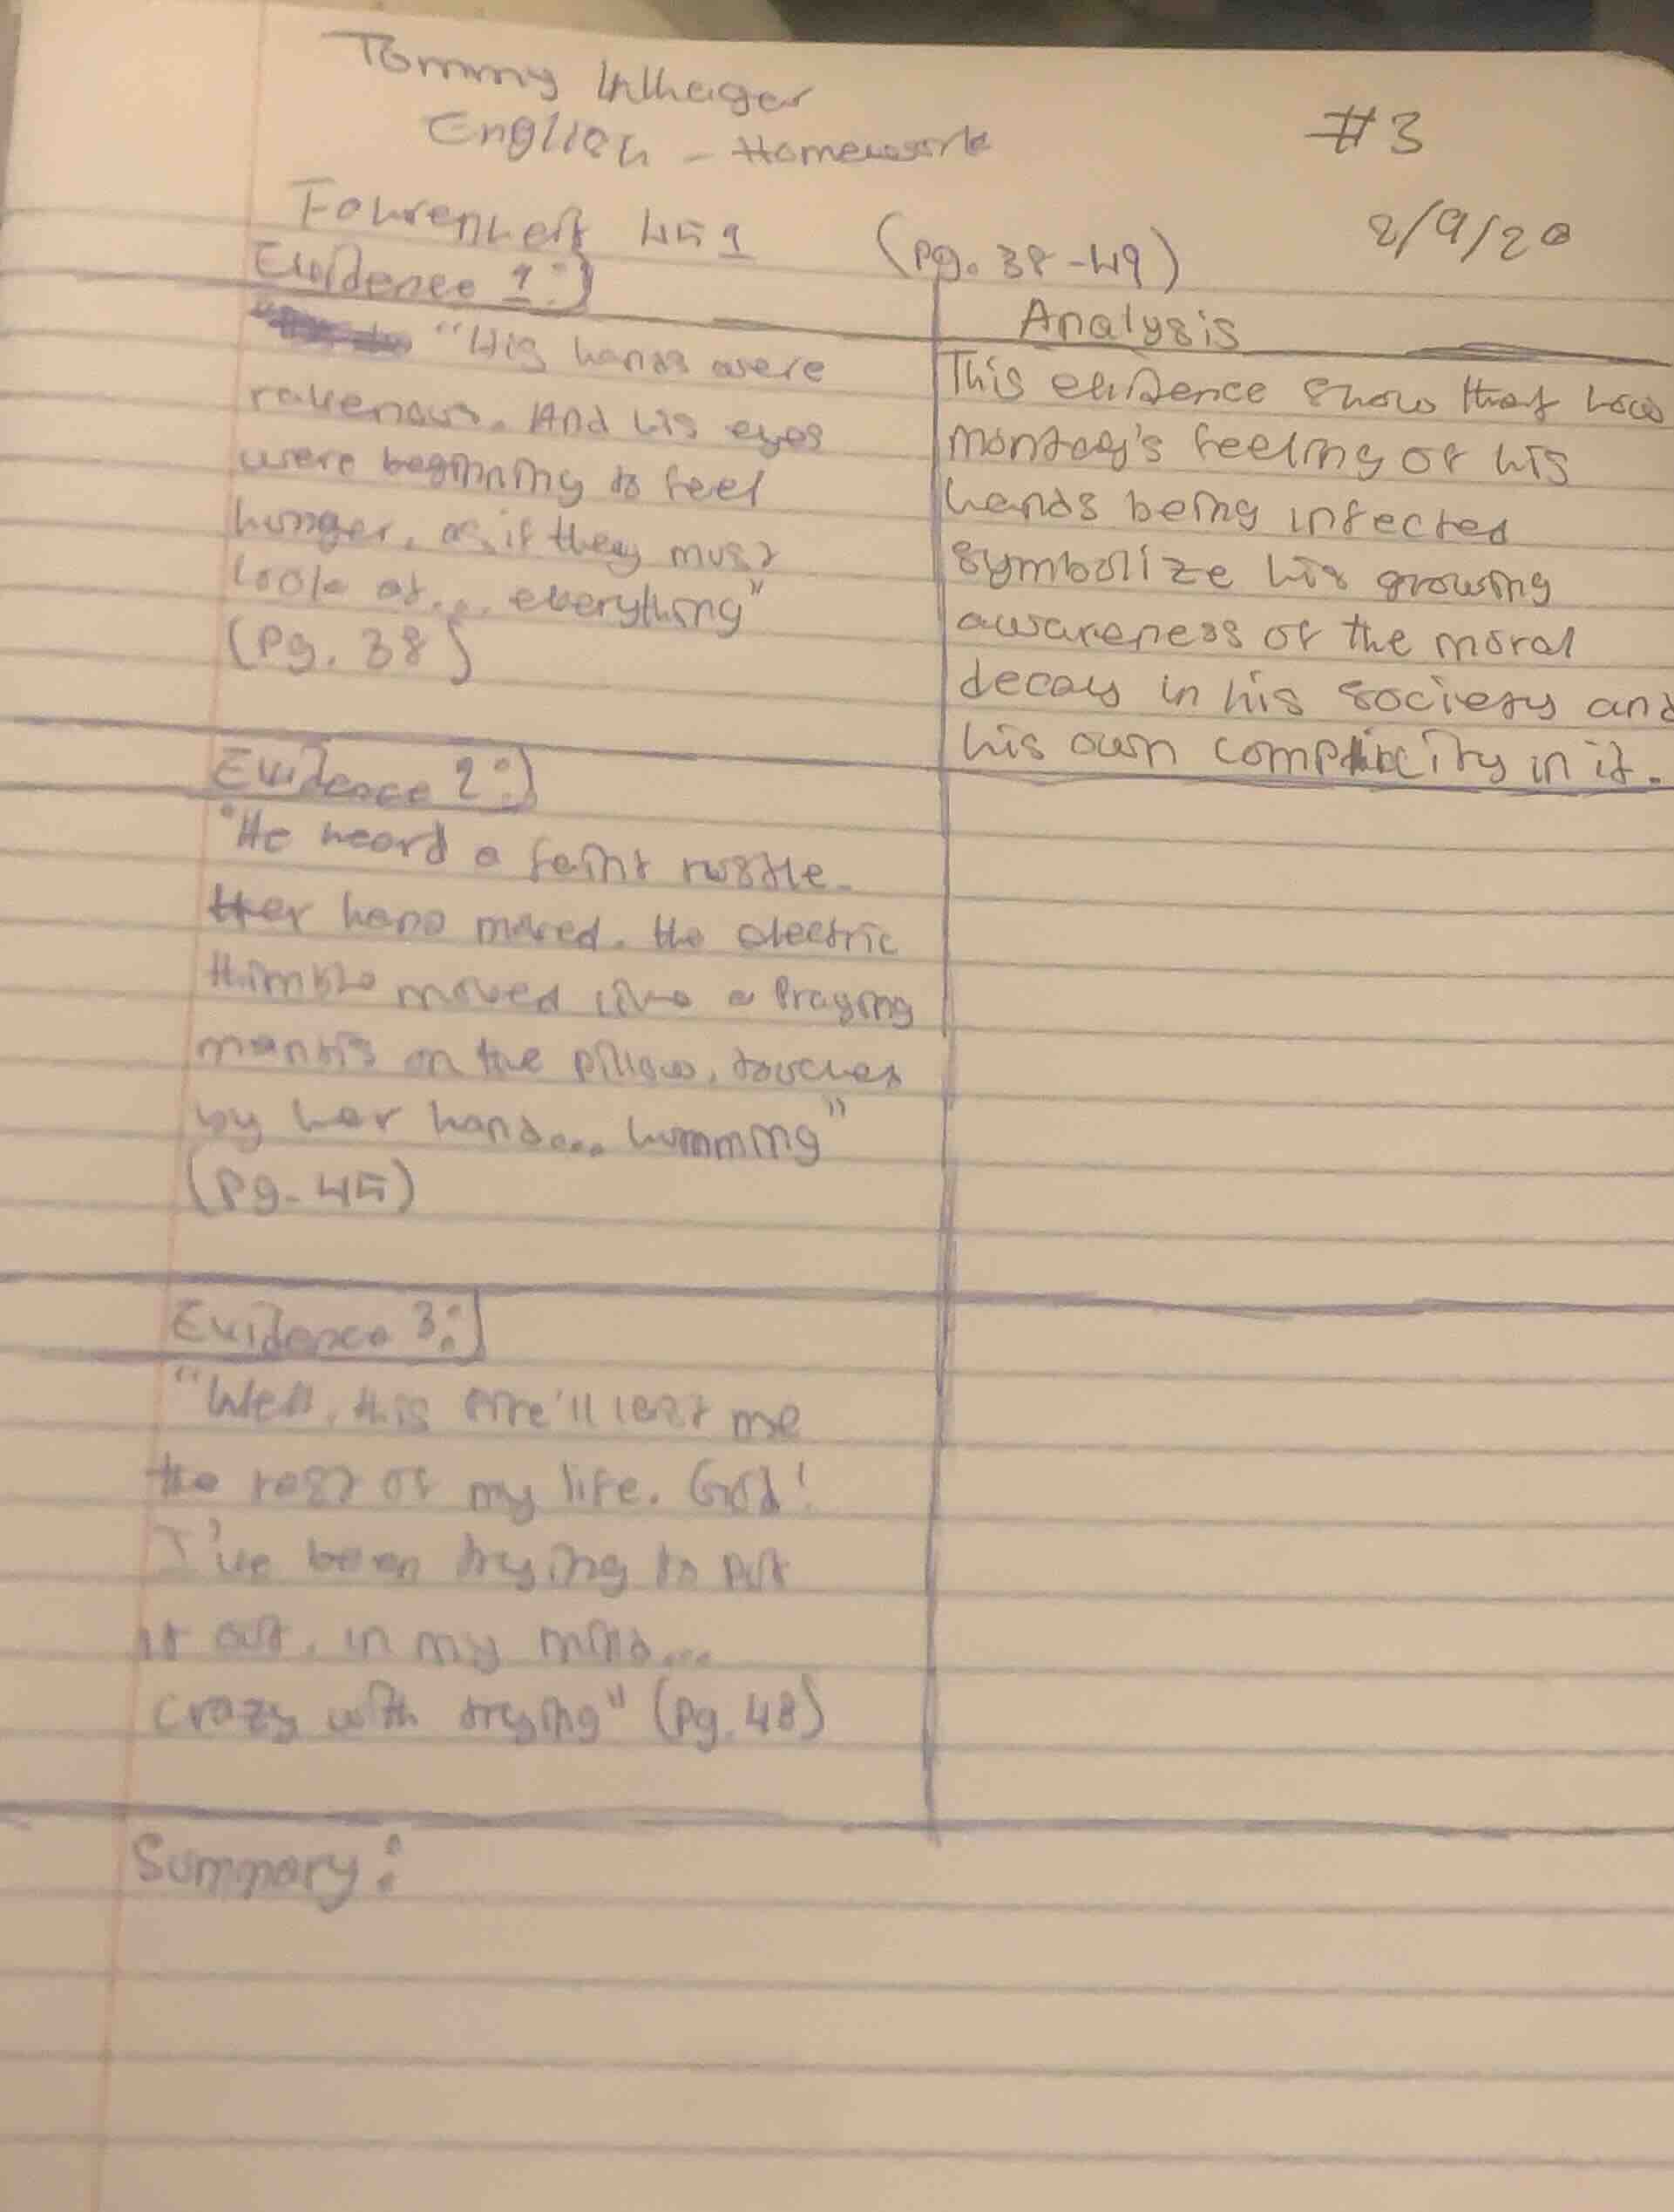 Tommy
English - Homework
#3
Fahrenheit 451
(pg. 38-49)
2/9/20
Evidence 1:)
Analysis
"His hands were
ravenous. And his eyes
were beginning to feel
hunger, as if they must
look at... everything"
(Pg. 38)
This evidence show that how
montag's feeling of his
hands being infected
symbolize his growing
awareness of the moral
decay in his society and
his own complicity in it.
Evidence 2:)
"He heard a faint rustle.
Her hand moved. the electric
thimble moved like a Praying
mantis on the pillow, touched
by her hand... humming"
(Pg. 45)
Evidence 3:)
"Well, this fire'll last me
the rest of my life. God!
I've been trying to put
it out, in my mind...
crazy with trying" (Pg. 48)
Summary: